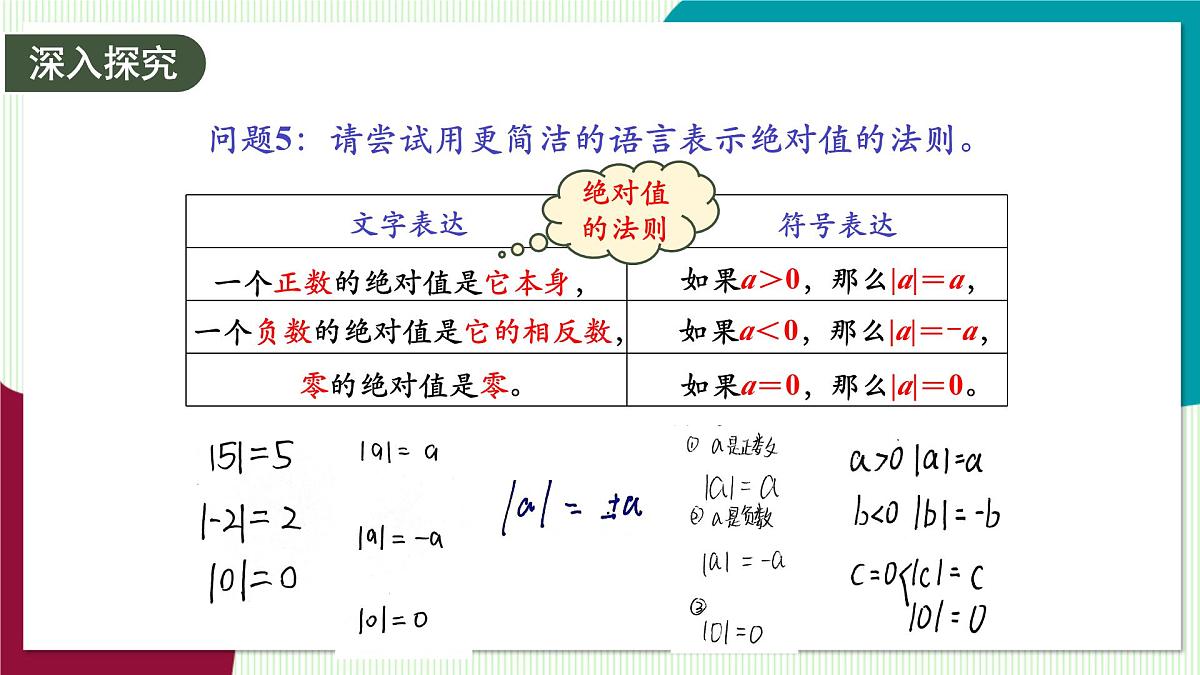 深入探究
问题5：请尝试用更简洁的语言表示绝对值的法则。
绝对值
的法则
文字表达 符号表达
一个正数的绝对值是它本身， 如果a＞0，那么|a|＝a，
一个负数的绝对值是它的相反数， 如果a＜0，那么|a|＝-a，
零的绝对值是零。 如果a＝0，那么|a|＝0。
|5|=5
|-2|=2
|0|=0
|a|= a
|a|=-a
|0|=0
|a| = ±a
① a是正数
|a|= a
② a是负数
|a| = -a
③
|0|=0
a>0 |a|=a
b<0 |b|=-b
c=0 |c|= c
|0|= 0